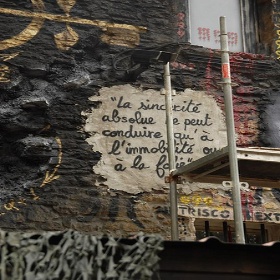 "La sincérité
absolue ne peut
conduire qu'à
l'immobilité ou
à la folie"
TRISCO TEXT